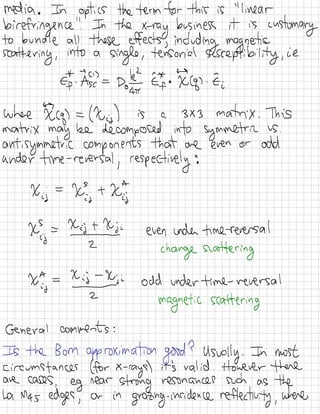 media. In optics the term for this is "linear
birefringence." In the x-ray business it is customary
to bundle all these effects, including magnetic
scattering, into a single, tensorial susceptibility, i.e
ε̂f* · A⃗sc⁽¹⁾ = D₀ k²/4π ε̂f* · χ⃡(q) · ε̂i
where χ⃡(q) = (χij) is a 3x3 matrix. This
matrix may be decomposed into symmetric vs.
antisymmetric components that are even or odd
under time-reversal, respectively:
χij = χij^S + χij^A
χij^S = (χij + χji)/2 even under time-reversal
change scattering
χij^A = (χij - χji)/2 odd under time-reversal
magnetic scattering
General comments:
Is the Born approximation good? Usually. In most
circumstances (for x-rays) it's valid. However there
are cases, eg near strong resonances such as the
La M4,5 edges, or in grazing-incidence reflectivity, where